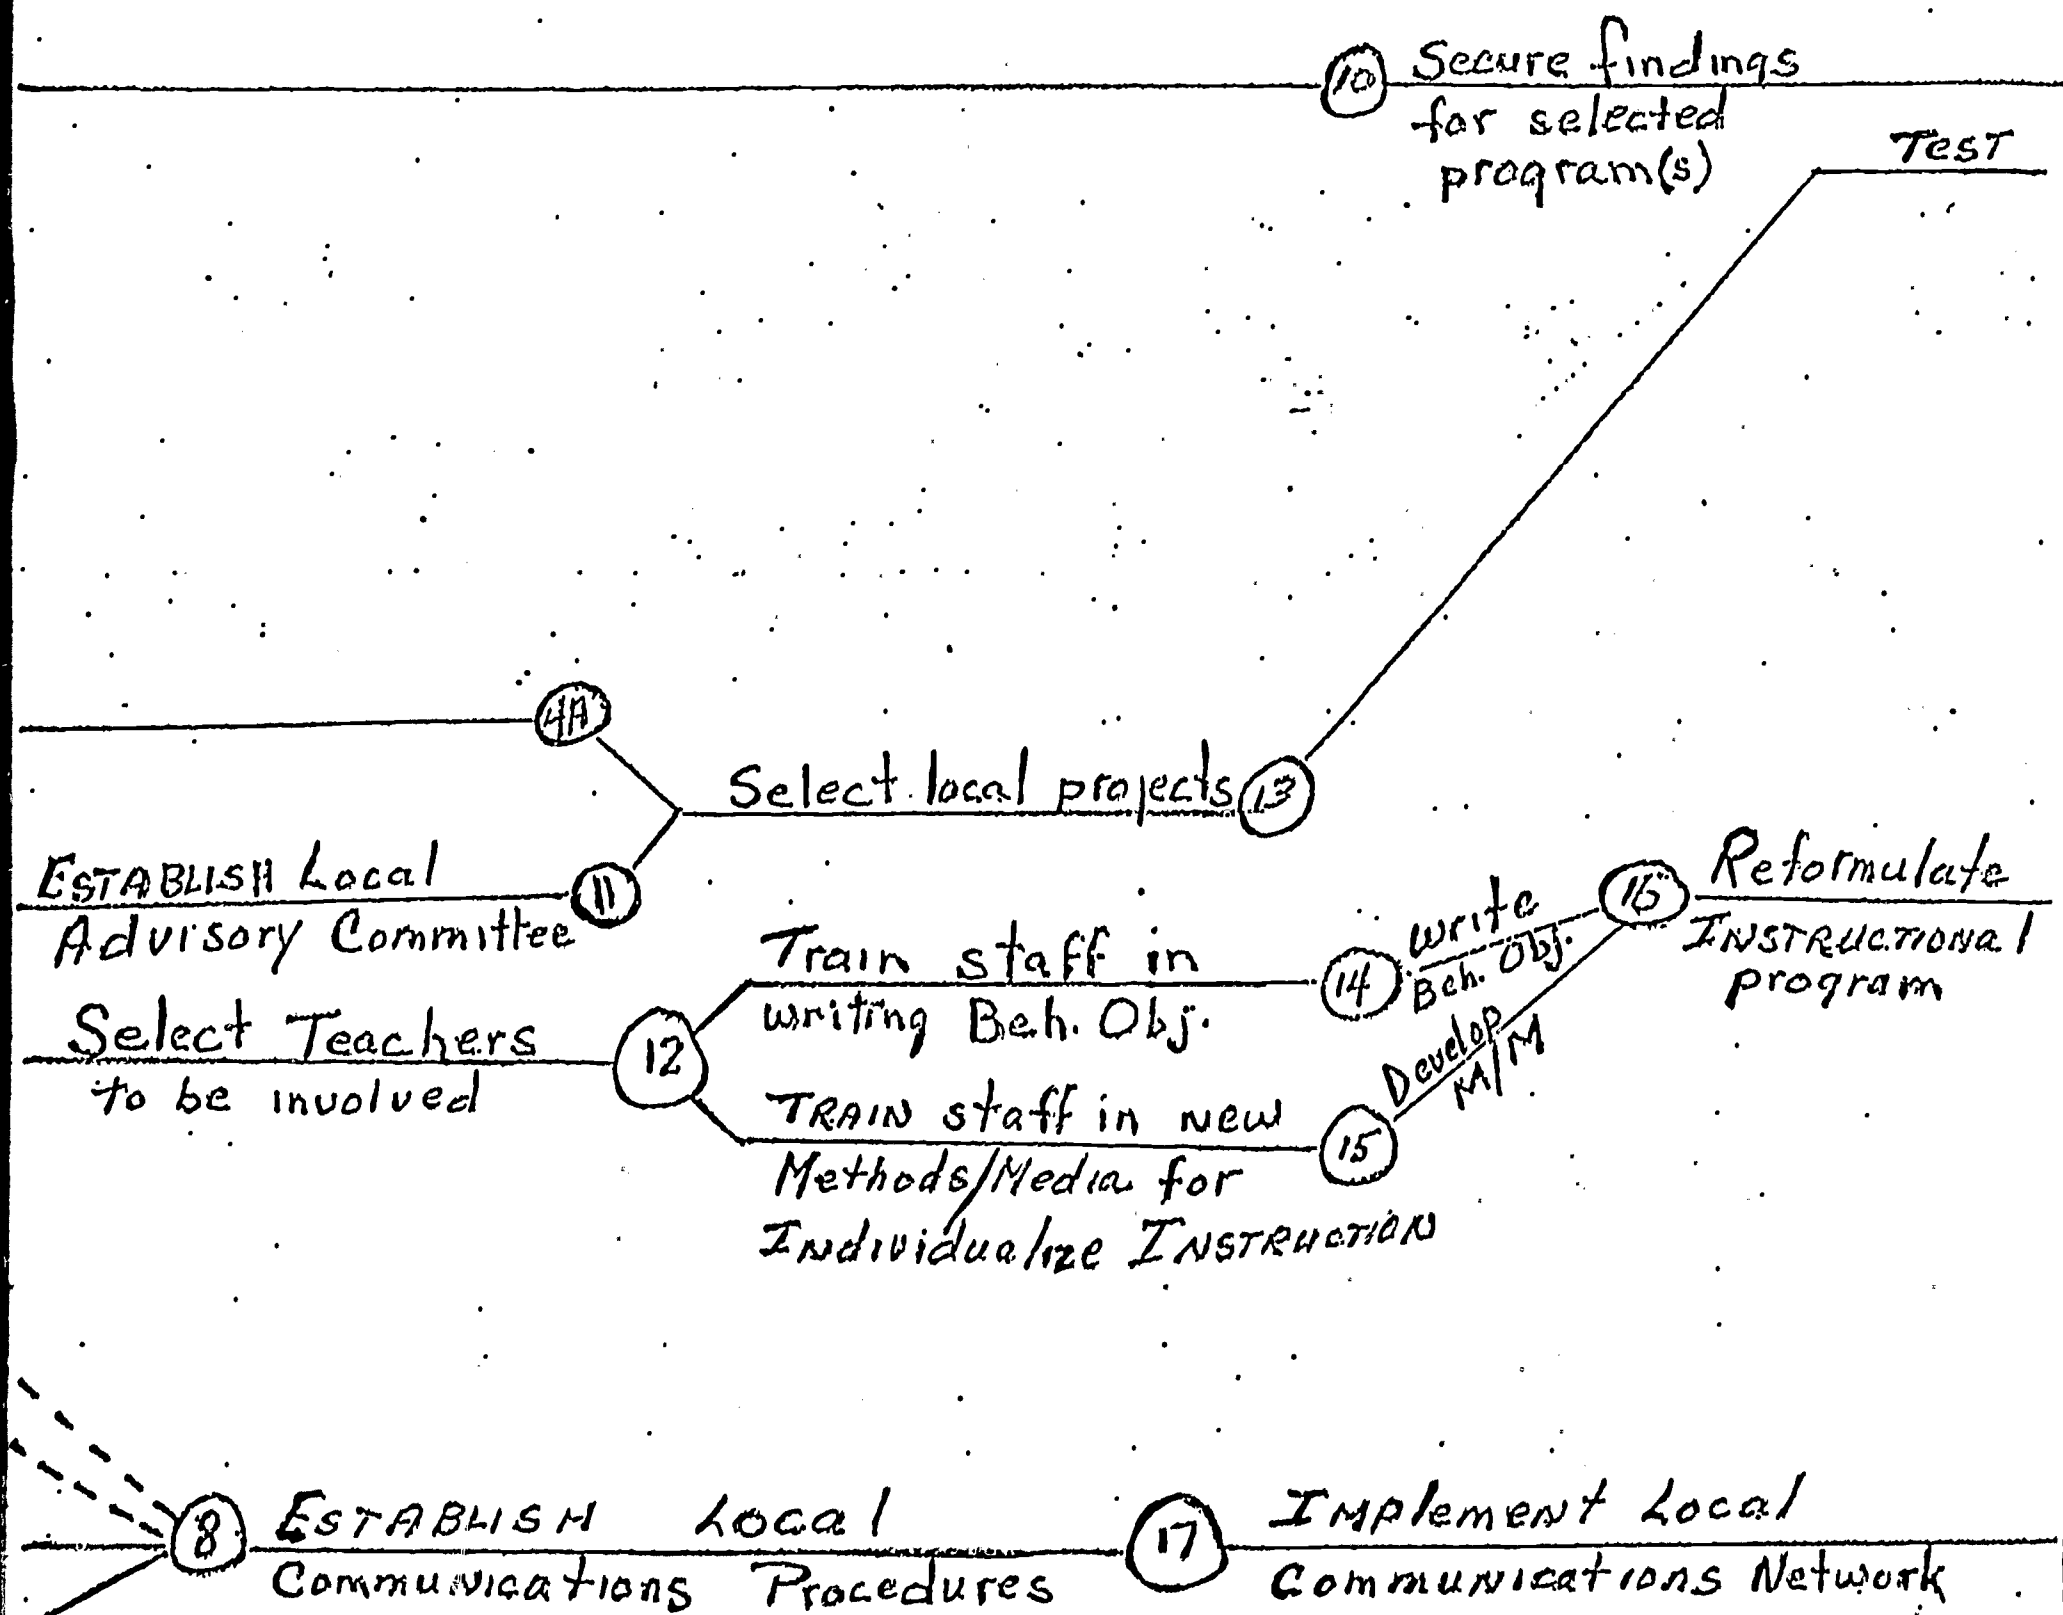 10 Secure findings
for selected
program(s)
TEST
4A
Select local projects 13
ESTABLISH Local 11
Advisory Committee
Select Teachers
to be involved
12
Train staff in
writing Beh. Obj.
14
Write
Beh. Obj.
16
Reformulate
INSTRUCTIONAL
program
TRAIN staff in new
Methods/Media for
Individualize INSTRUCTION
15
Develop
M/M
8 ESTABLISH Local
Communications Procedures
17 IMPlEMENT Local
Communications Network